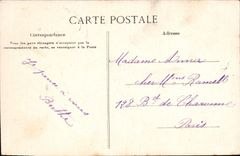 CARTE POSTALE
Correspondance
Tous les pays étrangers n'acceptent pas la
correspondance au recto, se renseigner à la Poste
Adresse
Je pense à vous
Berthe
Madame
chez Mme
128 Bd de Charonne
Paris